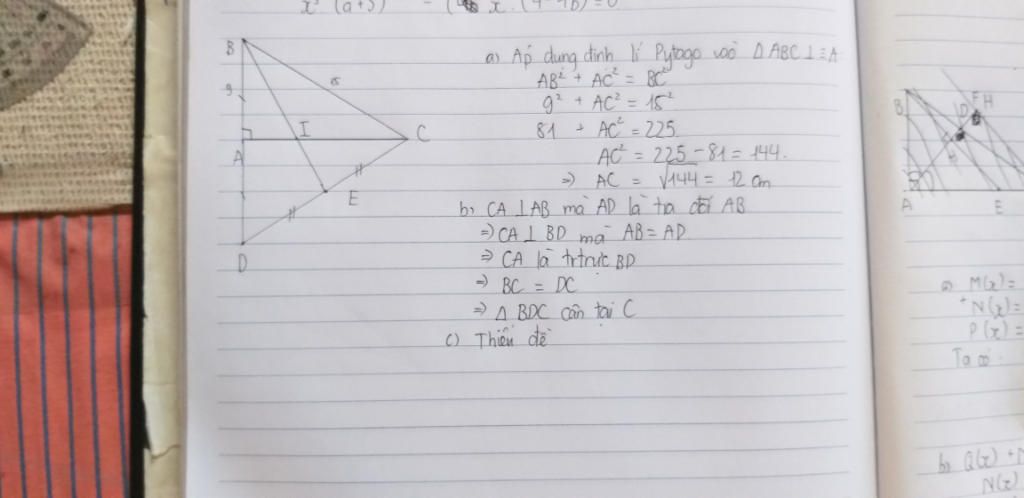 x³ (a+5)
x
B
9
15
I
C
A
E
D
a) Áp dụng định lí Pytago vào Δ ABC ⊥ ≡ A
AB² + AC² = BC²
9² + AC² = 15²
81 + AC² = 225
AC² = 225 - 81 = 144.
=> AC = √144 = 12 cm
b) CA ⊥ AB mà AD là tia đối AB
=> CA ⊥ BD mà AB = AD
=> CA là trtrực BD
=> BC = DC
=> Δ BDC cân tại C
c) Thiếu đề
B
D
F H
A
E
a) M(x) =
+ N(x) =
P(x) =
Ta có :
b) Q(x) +
N(x)